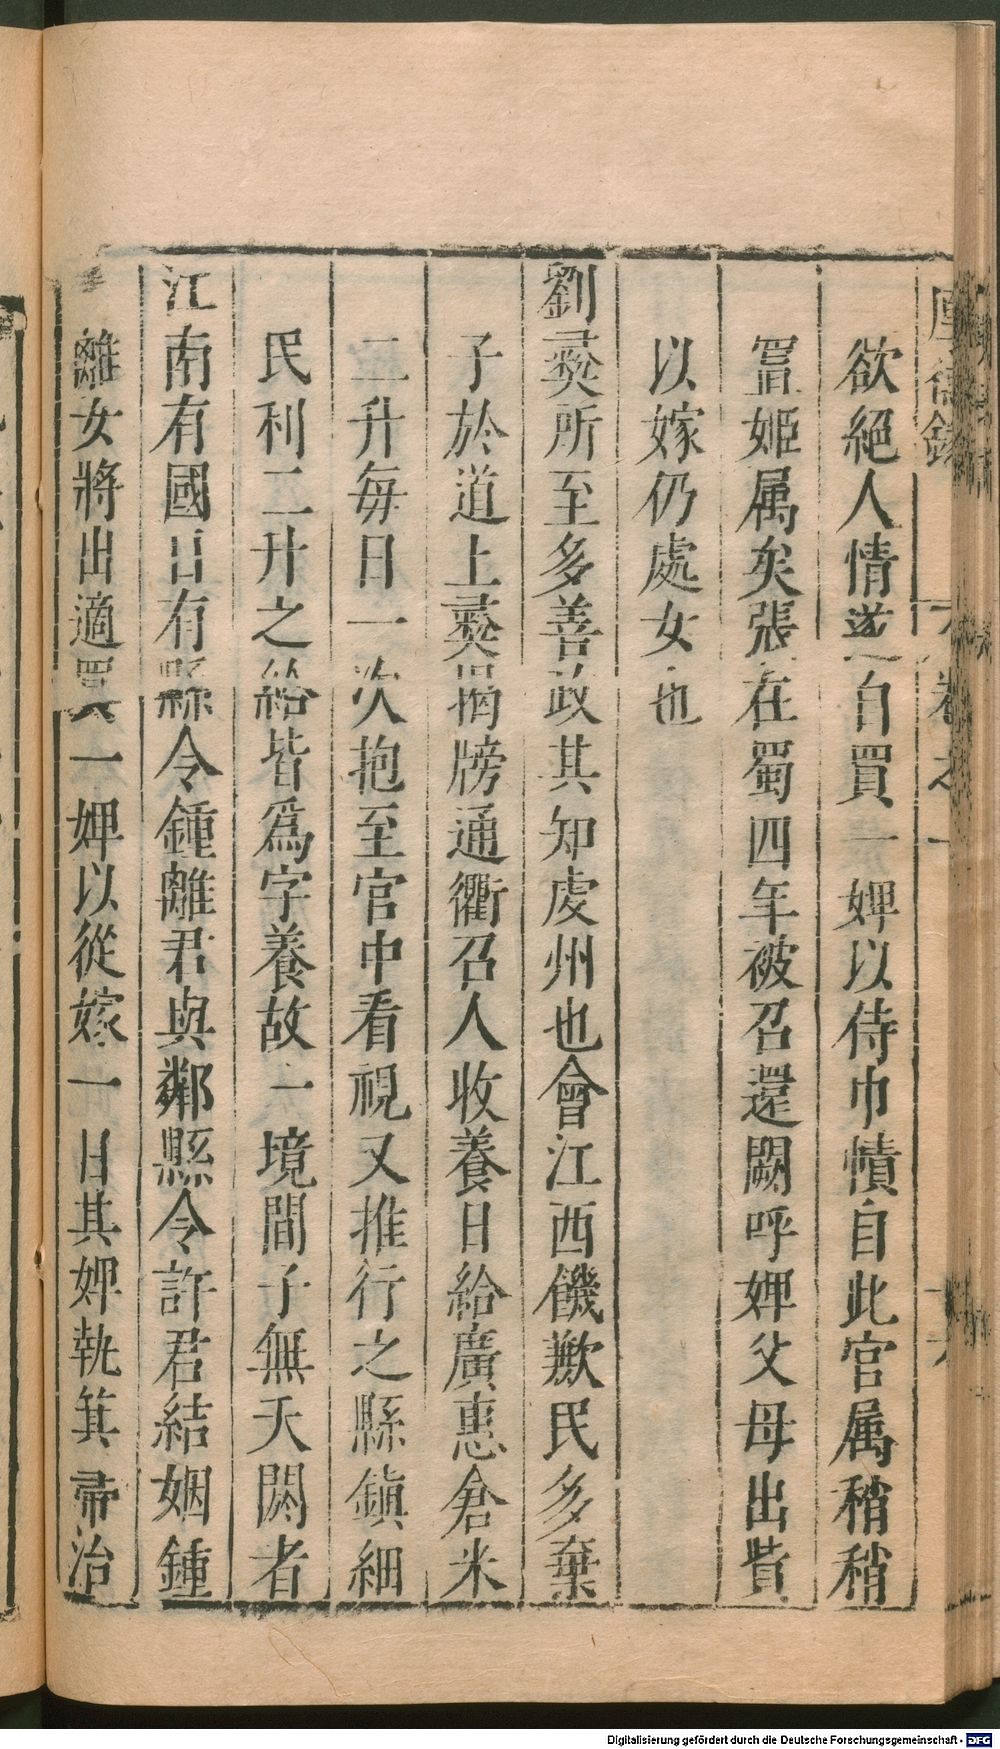 厚德錄 卷之一 十六
欲絕人情遂自買一婢以侍巾幘自此官属稍稍
置姬属矣張在蜀四年被召還闕呼婢父母出貲
以嫁仍處女也
劉彝所至多善政其知虔州也會江西饑歉民多棄
子於道上彝揭牓通衢召人收養日給廣惠倉米
二升每日一次抱至官中看視又推行之縣鎮細
民利二升之給皆爲字養故一境間子無夭閼者
江南有國日有縣令鍾離君與鄰縣令許君結姻鍾
離女將出適買一婢以從嫁一日其婢執箕帚治
Digitalisierung gefördert durch die Deutsche Forschungsgemeinschaft - DFG